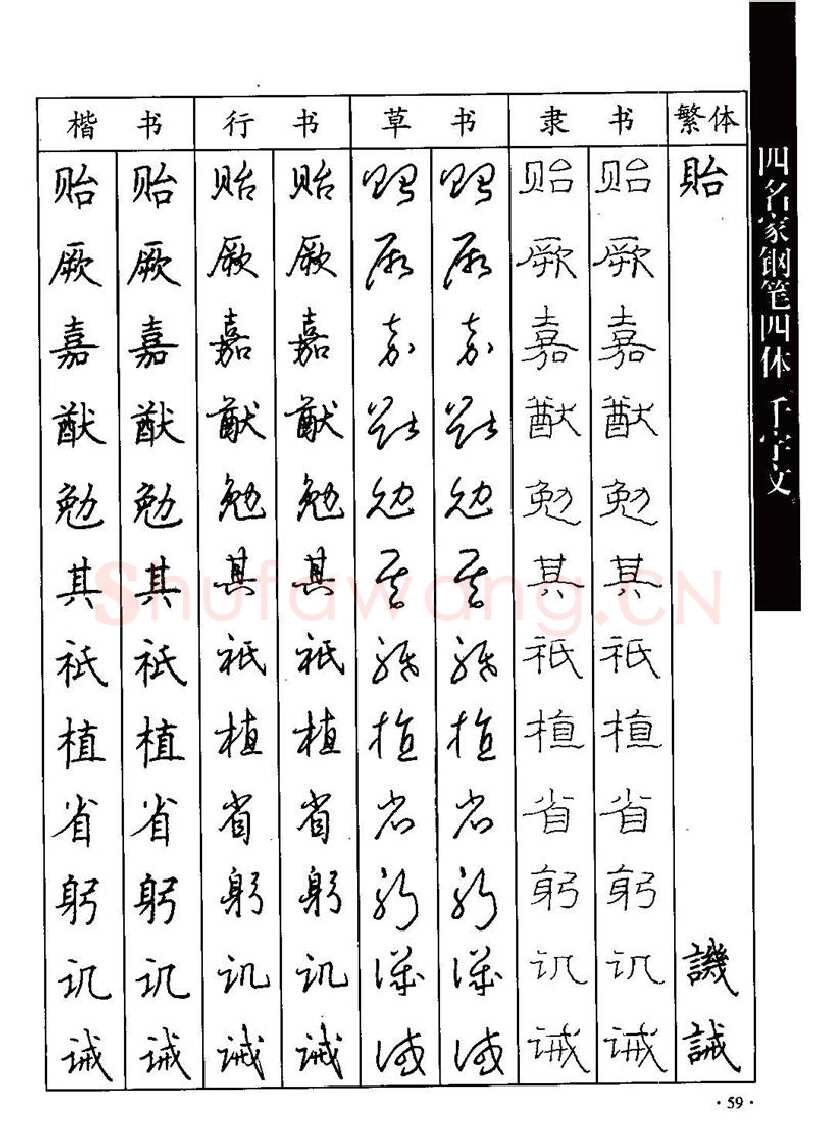 楷书 行书 草书 隶书 繁体
贻 贻 贻 贻 贻 贻 贻 贻 貽
厥 厥 厥 厥 厥 厥 厥 厥
嘉 嘉 嘉 嘉 嘉 嘉 嘉 嘉
猷 猷 猷 猷 猷 猷 猷 猷
勉 勉 勉 勉 勉 勉 勉 勉
其 其 其 其 其 其 其 其
祗 祗 祗 祗 祗 祗 祗 祗
植 植 植 植 植 植 植 植
省 省 省 省 省 省 省 省
躬 躬 躬 躬 躬 躬 躬 躬
讥 讥 讥 讥 譏 譏 讥 讥 譏
诫 诫 诫 诫 诫 诫 诫 诫 誡
四名家钢笔四体 千字文
Shufawang.CN
·59·